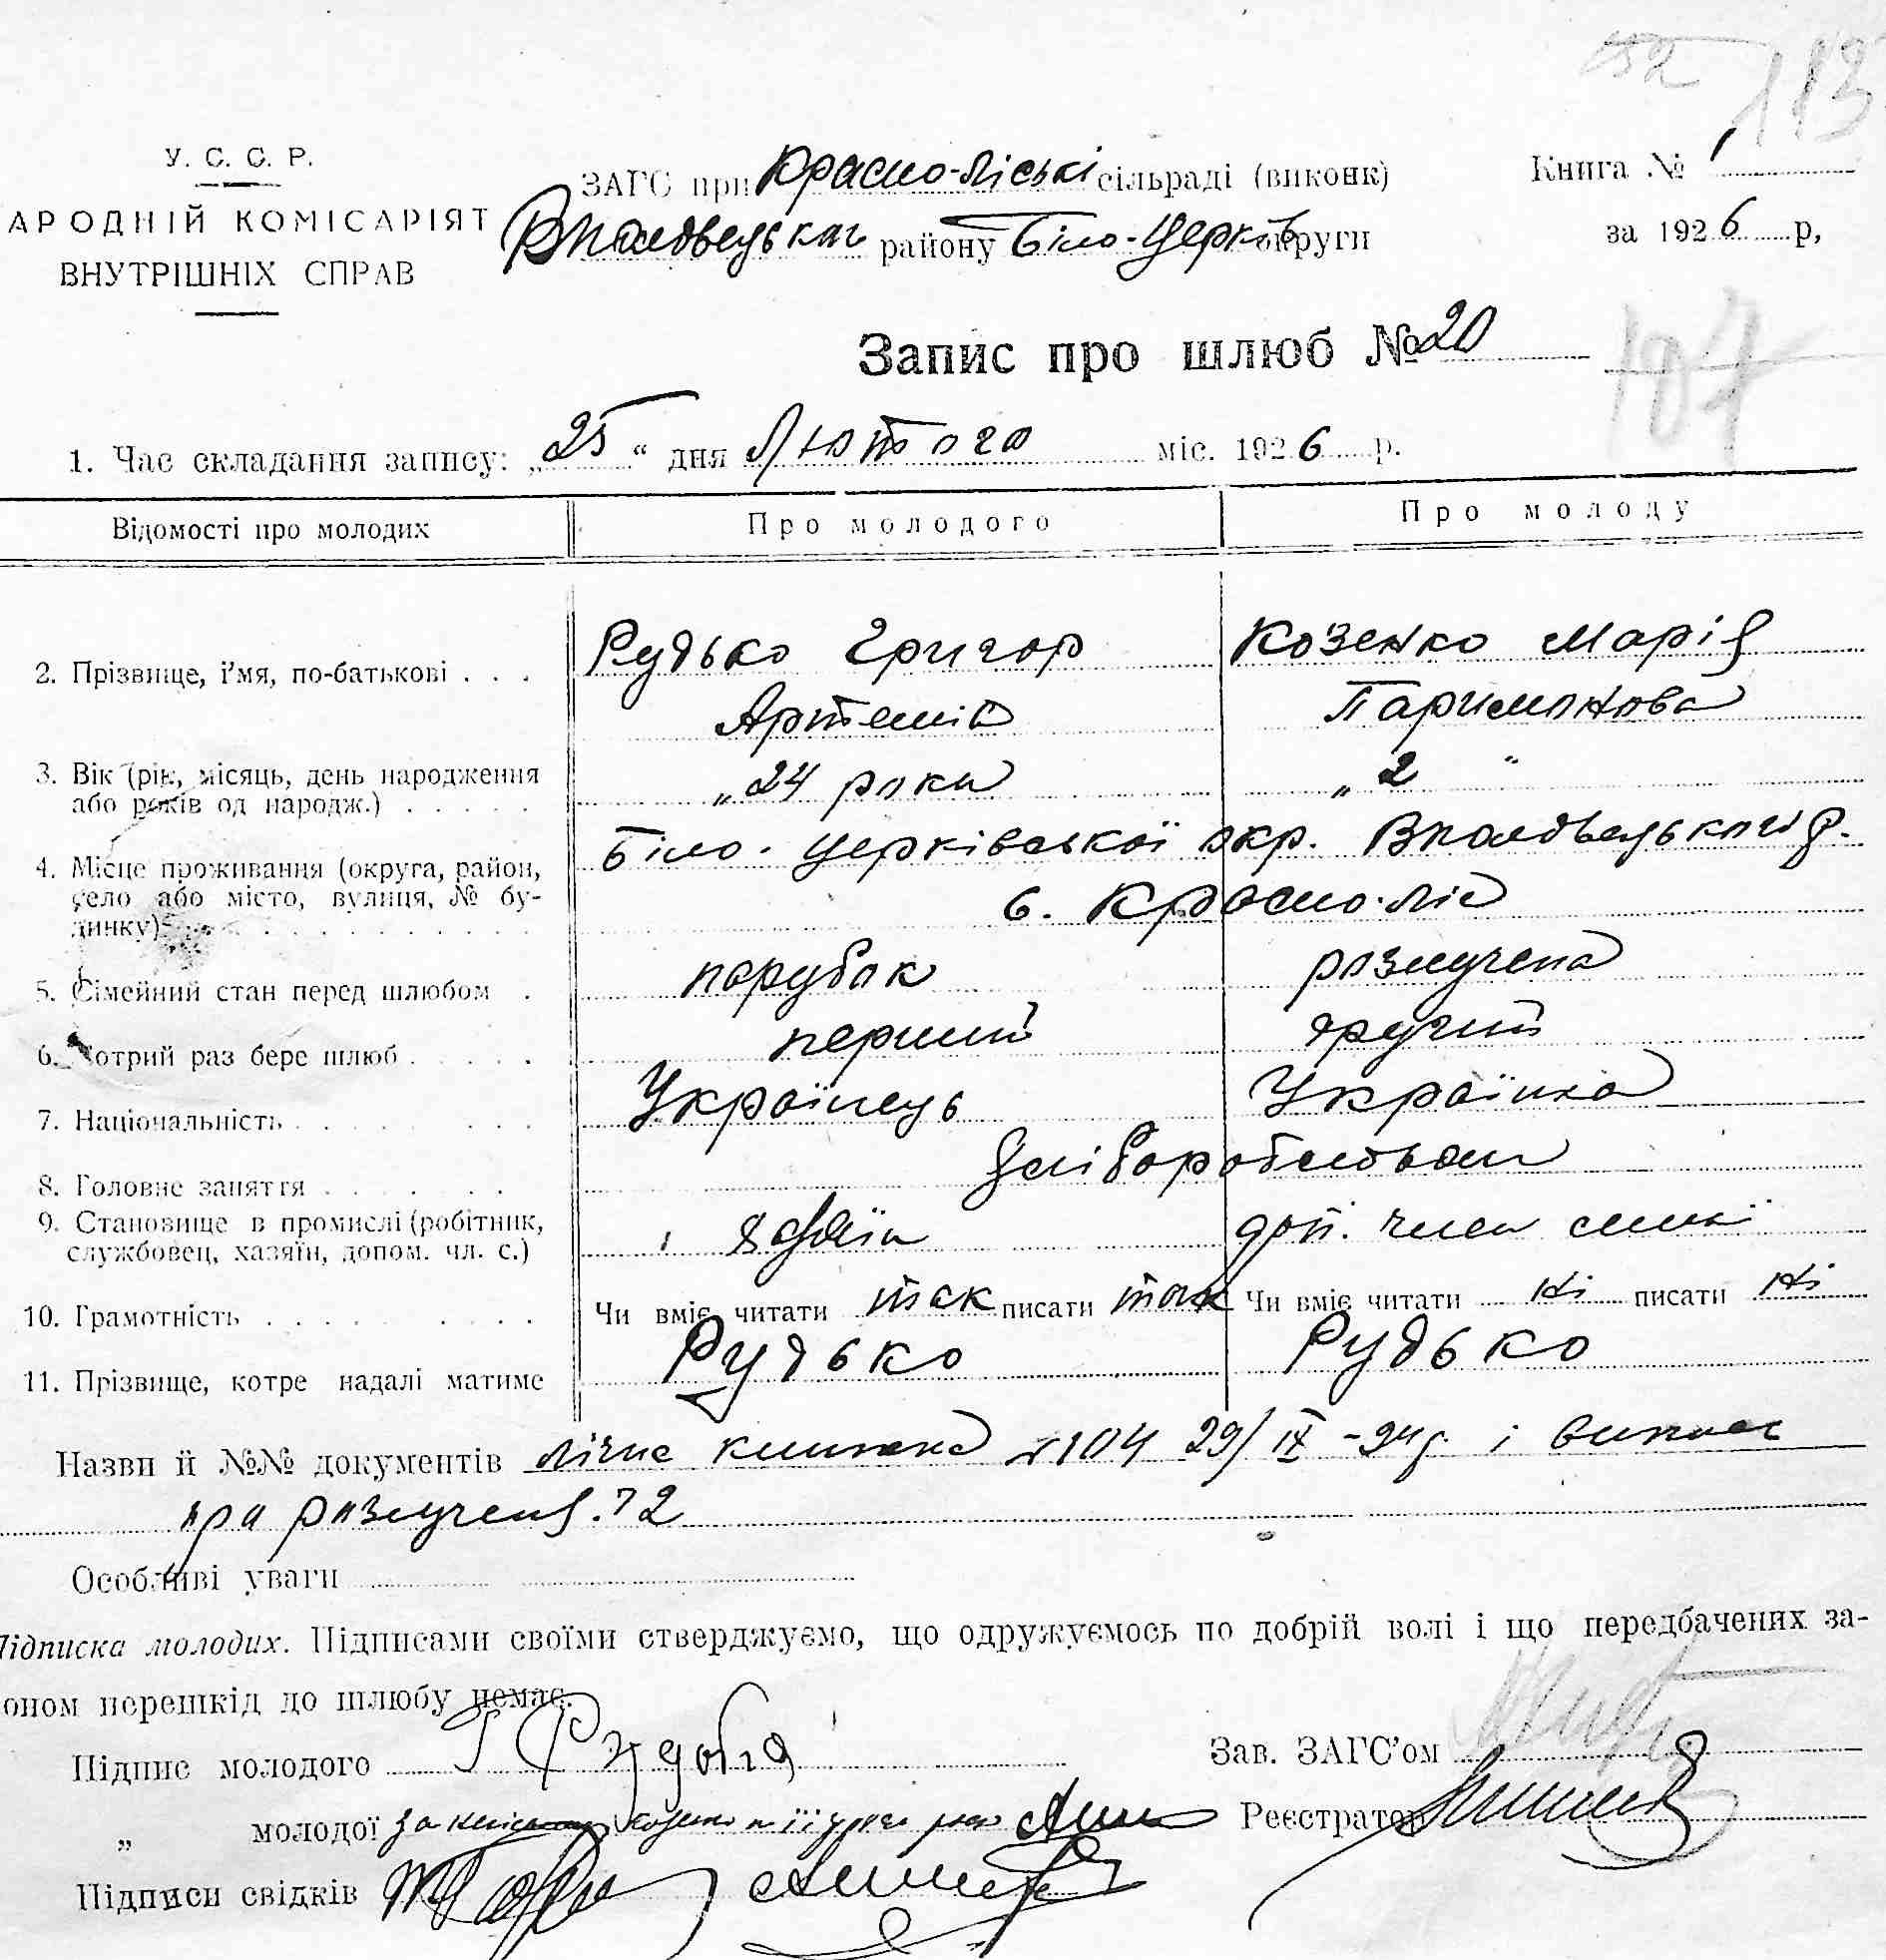 52 113
У. С. С. Р.
АРОДНІЙ КОМІСАРІЯТ
ВНУТРІШНІХ СПРАВ
ЗАГС при Красно-Ліські сільраді (виконк)
району Біло-Церків округи
Книга № 1
за 1926 р,
Запис про шлюб № 20
107
1. Час складання запису: „25“ дня Лютого міс. 1926 р.
Відомості про молодих Про молодого Про молоду
2. Прізвище, і’мя, по-батькові . . . Рудько Григор Козенко Марія
Артемів Паримонова
3. Вік (рік, місяць, день народження
або років од народж.) . . . . . „24 роки „2 "
4. Місце проживання (округа, район,
село або місто, вулиця, № бу-
динку) Біло-Церківської окр. р.
с. Красно-Ліс
5. Сімейний стан перед шлюбом . парубок розлучена
6. Котрий раз бере шлюб . . . . . перший другий
7. Національність . . . . . Українець Українка
8. Головне заняття . . . . .
9. Становище в промислі (робітник,
службовец, хазяїн, допом. чл. с.) хазяїн доп. член симї
10. Грамотність . . . . . Чи вміє читати так писати так Чи вміє читати ні писати ні
11. Прізвище, котре надалі матиме Рудько Рудько
Назви й №№ документів лічна книжка №104 29/IX-24р. і
про розлученя. 72
Особливі уваги
Підписка молодих. Підписами своїми стверджуємо, що одружуємось по добрій волі і що передбачених за-
оном перешкід до шлюбу немає.
Підпис молодого
Зав. ЗАГС’ом
„ молодої за
Реєстратор
Підписи свідків